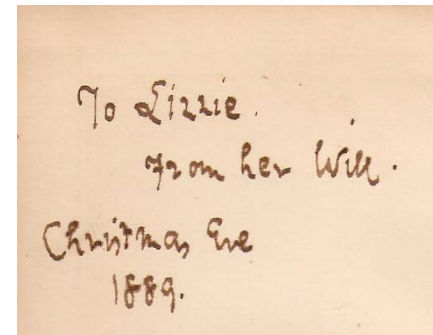 To Lizzie.
from her Will.
Christmas Eve
1889.